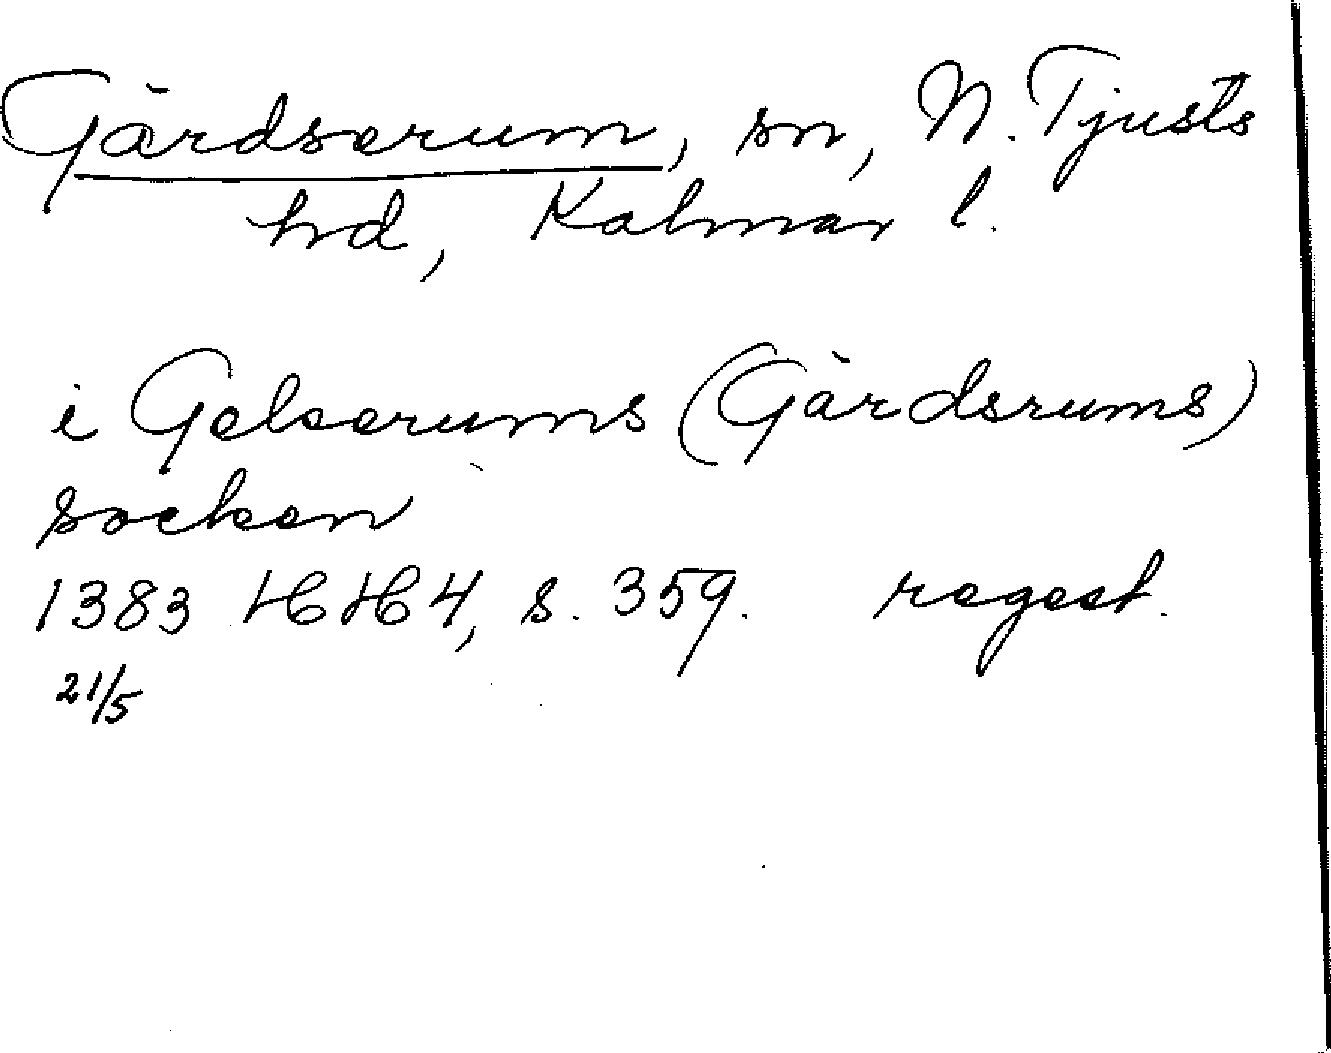 Gärdserum, sn, N. Tjusts
hd, Kalmar l.
i Gelserums (Gärdsrums)
socken
1383 HH 4, s. 359. regest.
21/5